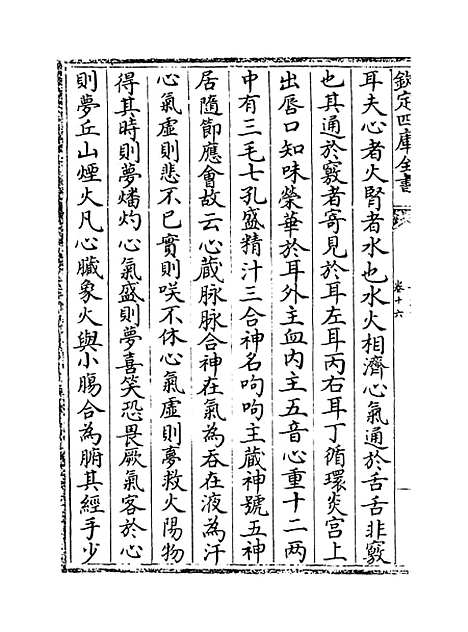 欽定四庫全書
卷十六
耳夫心者火腎者水也水火相濟心氣通於舌舌非竅
也其通於竅者寄見於耳左耳丙右耳丁循環炎宮上
出唇口知味榮華於耳外主血內主五音心重十二兩
中有三毛七孔盛精汁三合神名呴呴主藏神號五神
居隨節應會故云心藏脉脉合神在氣為吞在液為汗
心氣虛則悲不已實則咲不休心氣虛則夢救火陽物
得其時則夢燔灼心氣盛則夢喜笑恐畏厥氣客於心
則夢丘山煙火凡心臟象火與小腸合為腑其經手少